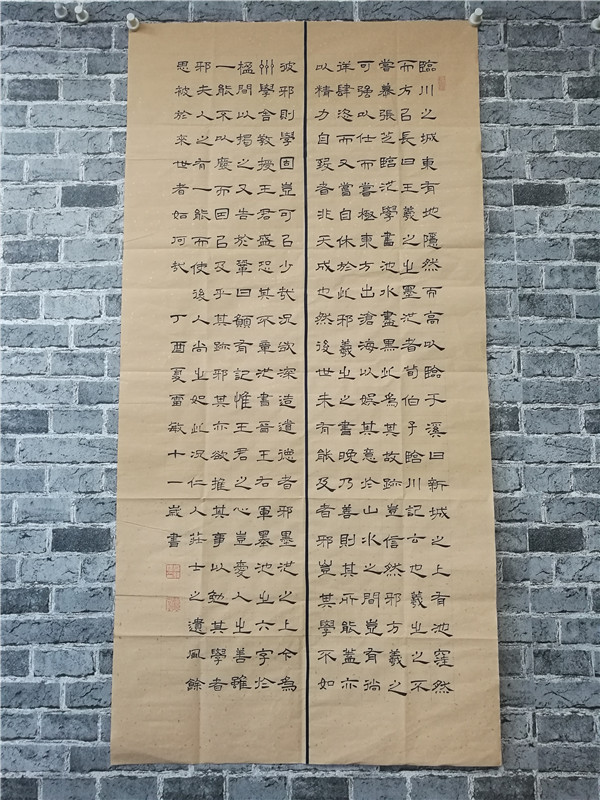 臨川之城東有地隱然而高以臨于溪曰新城之上有池窪然
而方以長曰王羲之之墨池者荀伯子臨川記云也羲之之不
嘗慕張芝臨池學書池水盡黑此為其故跡豈信然邪方羲之
可強以仕而嘗極東方出滄海以娛其意於山水之間豈有徜
詳肆恣而又嘗自休於此邪羲之之書晚乃善則其所能蓋亦
以精力自致者非天成也然後世未有能及者邪豈其學不如
彼邪則學固豈可以少哉況欲深造道德者邪墨池之上今為
州學舍教授王君盛恐其不章池書晉王右軍墨池之六字於
楹間以揭之又告於鞏曰願有記惟王君之心豈愛人之善雖
一能不以廢而因以及乎其跡邪其亦欲推其事以勉其學者
邪夫人之有一能而使後人尚之如此況仁人莊士之遺風餘
思被於來世者如何哉
丁酉夏雷敏十一歲書